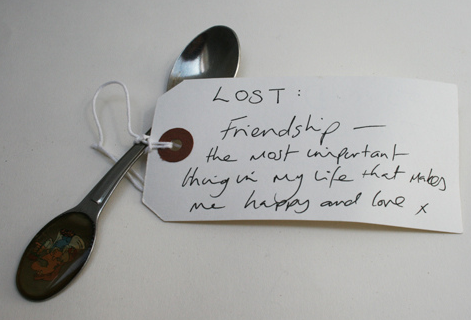 LOST:
Friendship —
the most important
thing in my life that makes
me happy and love x